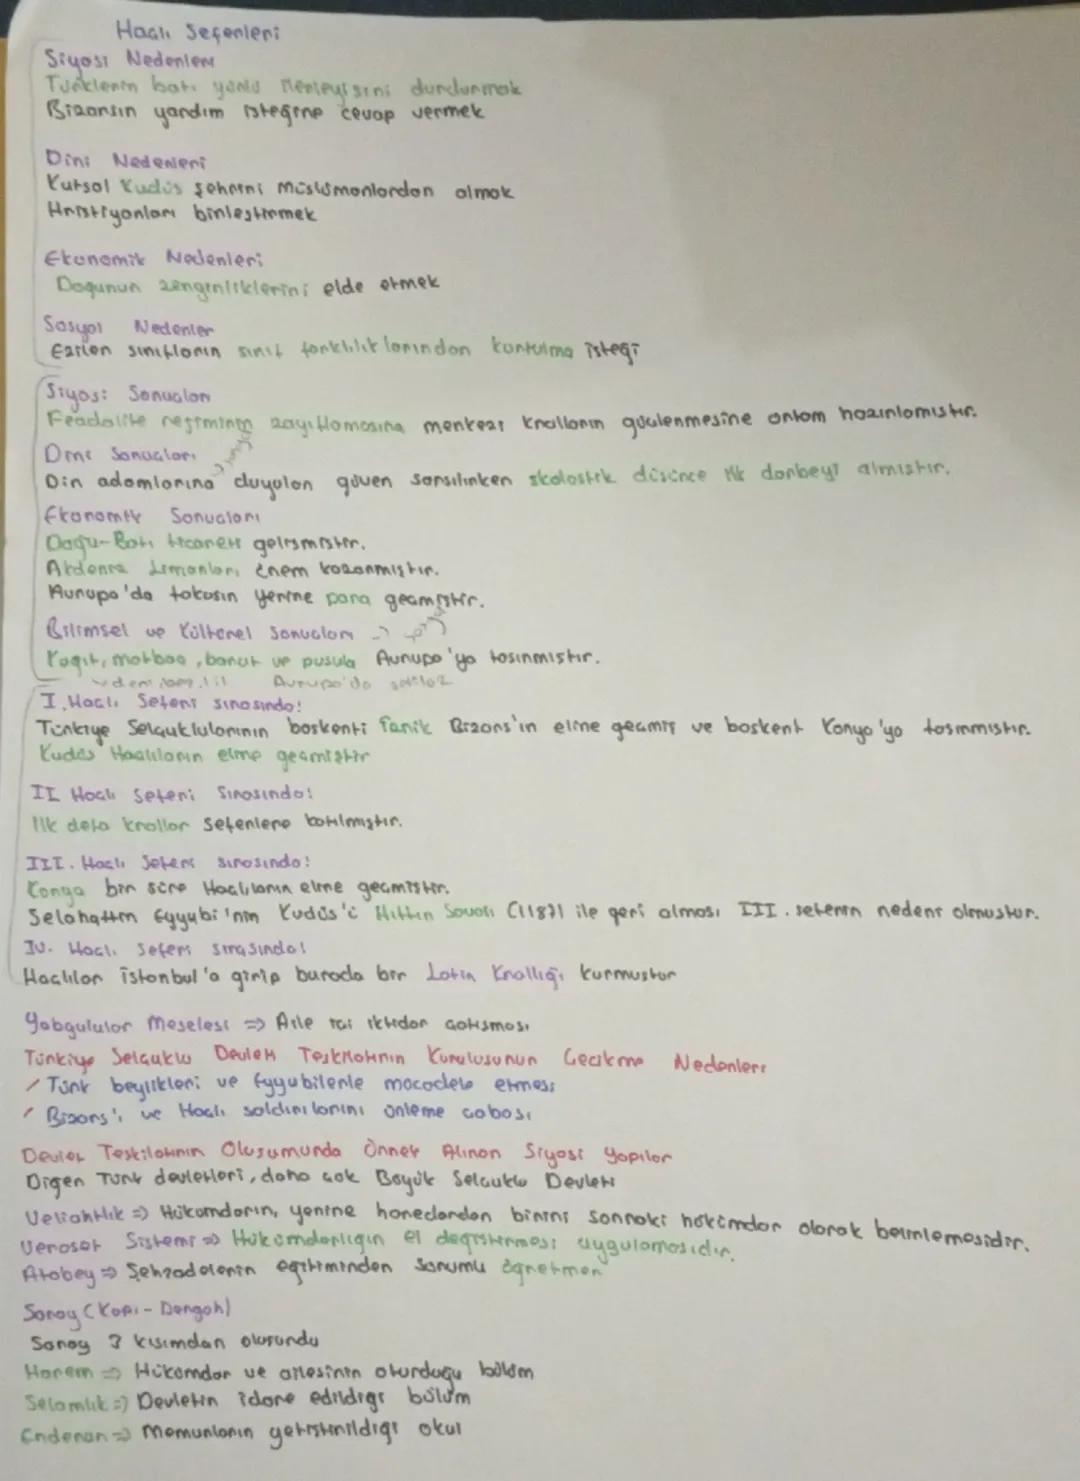 Haçlı Seferleri
Siyasi Nedenleri
Türklerin batı yönlü ilerleyişini durdurmak
Bizansın yardım isteğine cevap vermek
Dini Nedenleri
Kutsal Kudüs şehrini müslümanlardan almak
Hristiyanları birleştirmek
Ekonomik Nedenleri
Doğunun zenginliklerini elde etmek
Sosyal Nedenler
Ezilen sınıfların sınıf farklılıklarından kurtulma isteği
Siyasi Sonuçları
Feadalite rejiminin zayıflamasına merkezi kralların güçlenmesine ortam hazırlamıştır.
Dini Sonuçları
Din adamlarına duyulan güven sarsılırken skolastik düşünce ilk darbeyi almıştır.
Ekonomik Sonuçları
Doğu-Batı ticareti gelişmiştir.
Akdeniz Limanları önem kazanmıştır.
Avrupa'da takasın yerine para geçmiştir.
Bilimsel ve Kültürel Sonuçları
Kağıt, matbaa, barut ve pusula Avrupa'ya taşınmıştır.
Avrupa'da
I. Haçlı Seferi sırasında:
Türkiye Selçuklularının başkenti İznik Bizans'ın eline geçmiş ve başkent Konya'ya taşınmıştır.
Kudüs Haçlıların eline geçmiştir
II Haçlı Seferi Sırasında:
İlk defa krallar seferlere katılmıştır.
III. Haçlı Seferi sırasında:
Konya bir süre Haçlıların eline geçmiştir.
Selahattin Eyyubi'nin Kudüs'ü Hittin Savaşı (1187) ile geri alması III. seferin nedeni olmuştur.
IV. Haçlı Seferi sırasında:
Haçlılar İstanbul'a girip burada bir Latin Krallığı kurmuştur
Yabgulular Meselesi => Aile içi iktidar çatışması
Türkiye Selçuklu Devleti Teşkilatının Kuruluşunun Gecikme Nedenleri
/ Türk beylikleri ve Eyyubilerle mücadele etmesi
/ Bizans'ı ve Haçlı saldırılarını önleme çabası
Devlet Teşkilatının Oluşumunda Örnek Alınan Siyasi Yapılar
Diğer Türk devletleri, daha çok Büyük Selçuklu Devleti
Veliahtlık => Hükümdarın, yerine hanedardan birini sonraki hükümdar olarak belirlemesidir.
Veraset Sistemi => Hükümdarlığın el değiştirmesi uygulamasıdır.
Atabey => Şehzadelerin eğitiminden sorumlu öğretmen
Saray (Kapı - Dergah)
Saray 3 kısımdan oluşurdu
Harem => Hükümdar ve ailesinin oturduğu bölüm
Selamlık => Devletin idare edildiği bölüm
Enderun => Memurların yetiştirildiği okul